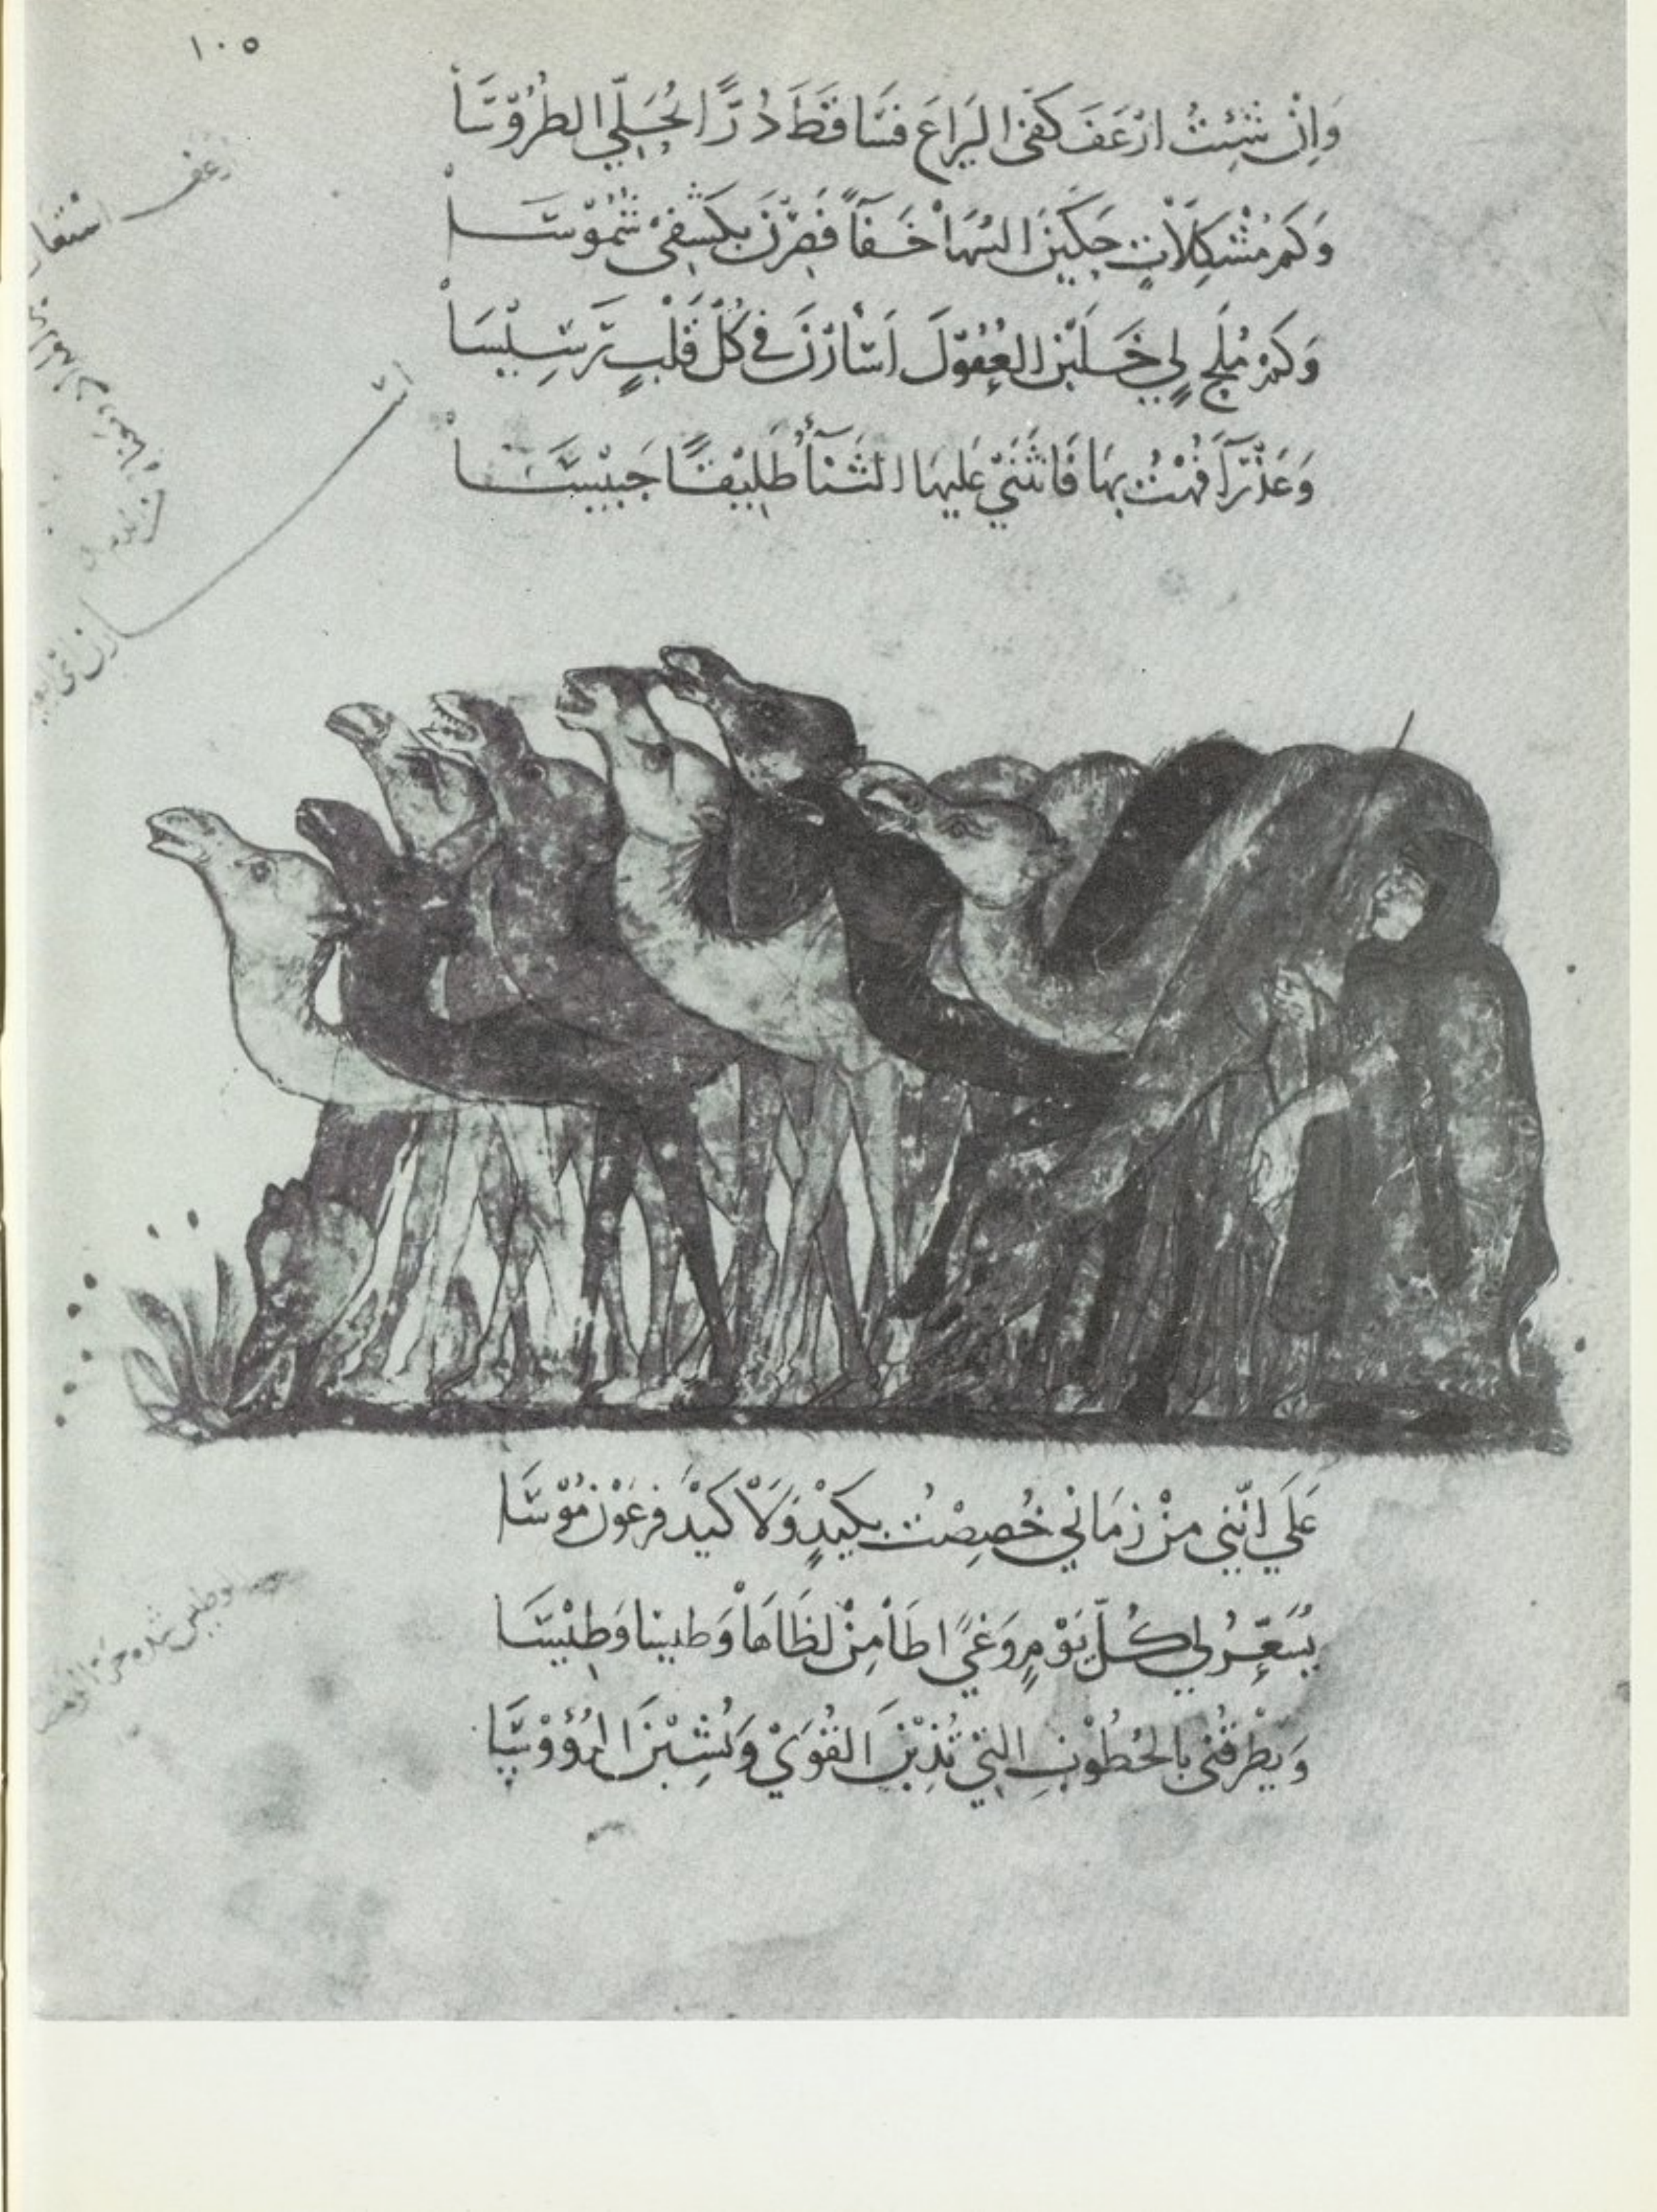 ١٠٥
وَاِنْ شِئْتُ ارْعَفَ كَفّى اليَرَاعَ فسَّاقَطَ دُرًّا يُحَلِّي الطُرُوْسَا
وَكَمْ مُشْكِلَاتٍ حَكَيْنَ السُهَا خَفَآءً فَصِرْنَ بكَشْفِىْ شُمُوْسَا
وَكَمْ مُلَحٍ لِي خَلَبْنَ العُقُوْلَ اَسْأرْنَ فِي كُلّ قَلْبٍ رَسِيْسَا
وَعَذْرَآءَ فُهْتُ بِهَا فَانْثَنَىْ عَليهَا الثَنَآءُ طَلِيْقًا حَبِيْسَا
ارعف
عَلَى انَّنِي مِنْ زمَانِي خُصِصْتُ بِكَيْدٍ وَلَا كَيْدَ فِرعَوْنَ مُوْسَا
يُسَعِّرُ لِي كُلَّ يَوْمٍ وَغىً اطَأ مِنْ لَظَاهَا وَطيسًا وَطِيْسَا
وَيَطْرقُنِى بالخُطُوْبِ التِي تُذِبْنَ القُوَىْ وَتُشِبْنَ الرُؤُوْسَا